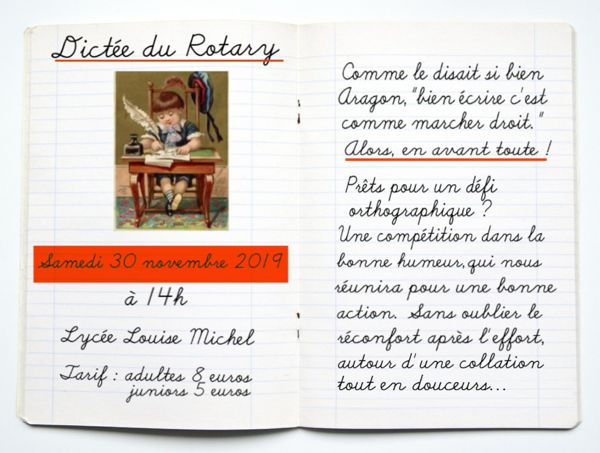 Dictée du Rotary
Samedi 30 novembre 2019
à 14h
Lycée Louise Michel
Tarif : adultes 8 euros
juniors 5 euros
Comme le disait si bien
Aragon, "bien écrire c'est
comme marcher droit."
Alors, en avant toute !
Prêts pour un défi
orthographique ?
Une compétition dans la
bonne humeur, qui nous
réunira pour une bonne
action. Sans oublier le
réconfort après l'effort,
autour d'une collation
tout en douceurs...